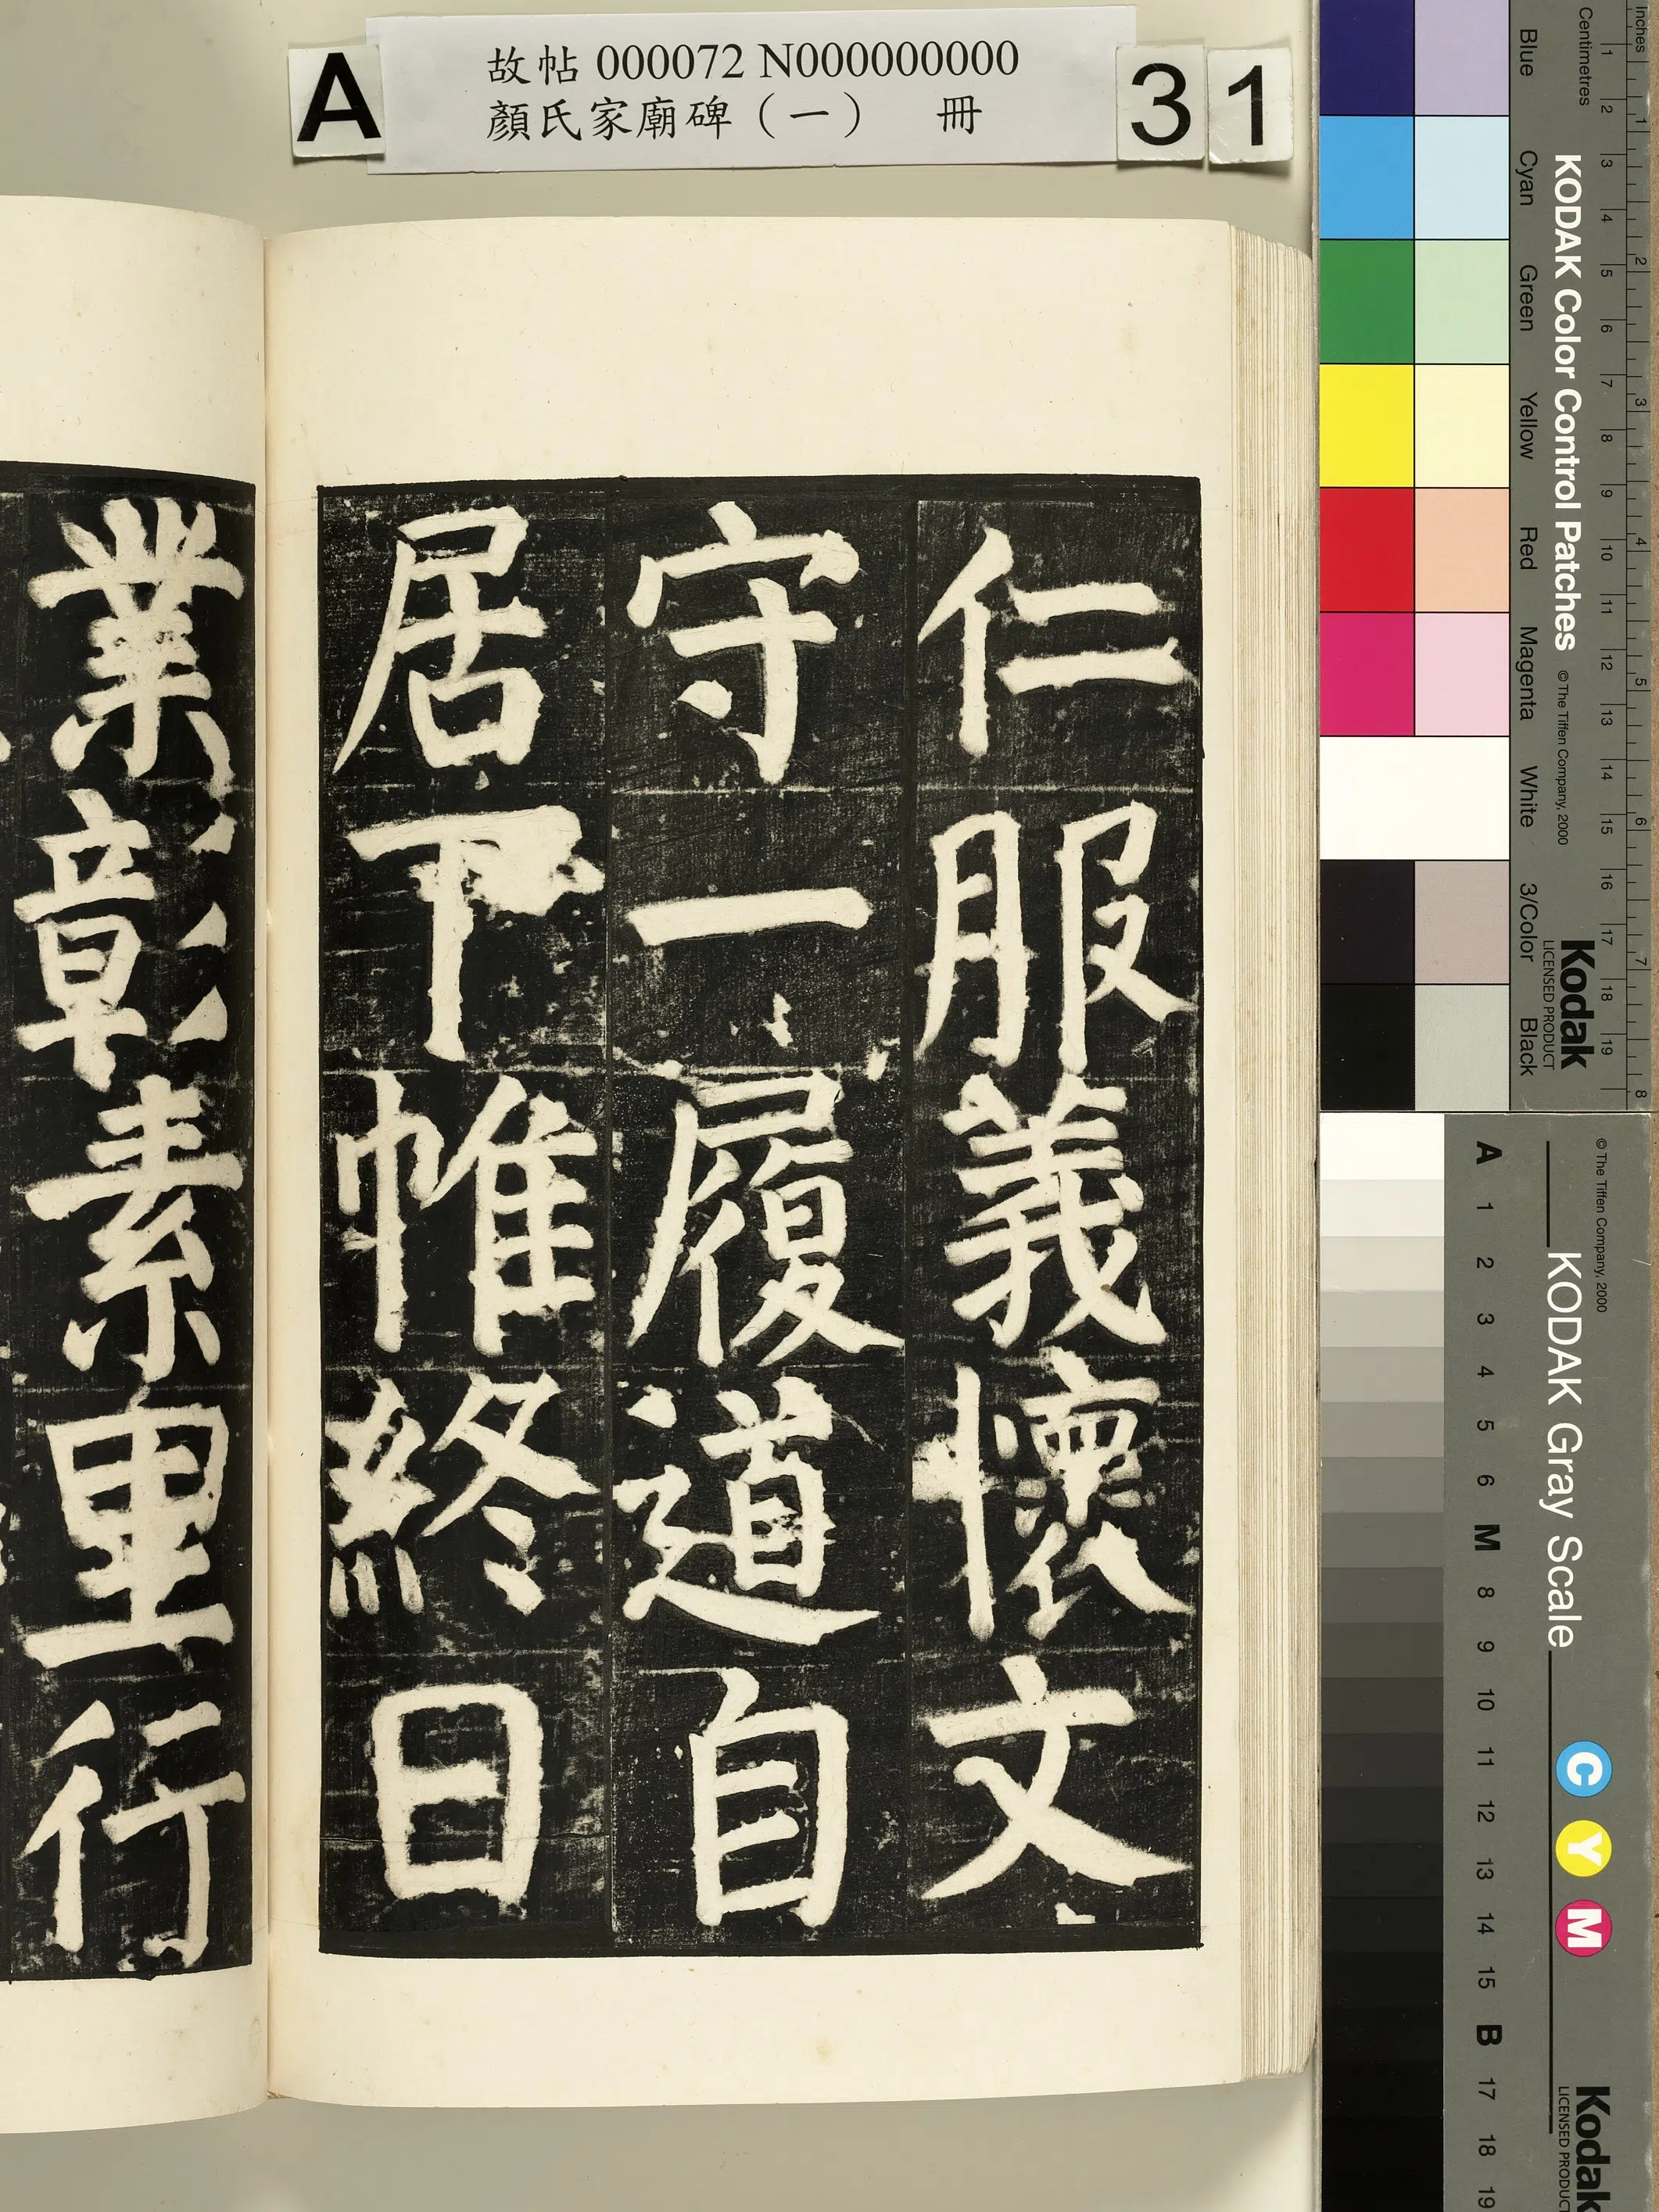 A
故帖 000072 N000000000
顏氏家廟碑（一） 冊
3 1
仁服義懷文
守一履道自
居下帷終日
業彰素里行
Inches
Centimetres
1 2 3 4 5 6 7 8
1 2 3 4 5 6 7 8 9 10 11 12 13 14 15 16 17 18 19
KODAK Color Control Patches © The Tiffen Company, 2000 Kodak
LICENSED PRODUCT
Blue Cyan Green Yellow Red Magenta White 3/Color Black
© The Tiffen Company, 2000
KODAK Gray Scale
C Y M
Kodak
LICENSED PRODUCT
A 1 2 3 4 5 6 M 8 9 10 11 12 13 14 15 B 17 18 19